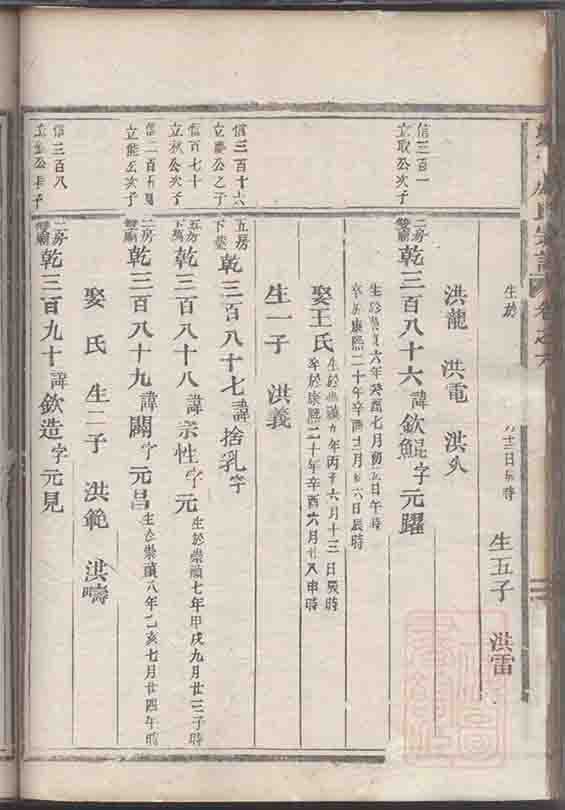 生於
廿三日辰時
生五子 洪雷
洪龍 洪電
信三百一
立取公次子
二房
乾三百八十六諱欽鯤字元躍
生於崇禎六年癸酉七月初五日午時
卒於康熙二十年辛酉三月十六日辰時
娶王氏
生於崇禎九年丙子六月十三日辰時
卒於康熙二十年辛酉六月廿八申時
生一子 洪義
信三百十六
立公之子
五房
乾三百八十七諱捨乳字
信百七十
立秋公次子
五房
乾三百八十八諱宗性字元
生於崇禎七年甲戌九月廿三子時
信二百
立能公次子
二房
乾三百八十九諱闢字元昌
生於崇禎八年乙亥七月廿四午時
娶 氏 生二子 洪範 洪疇
信三百八
立公長子
二房
乾三百九十諱欽造字元見